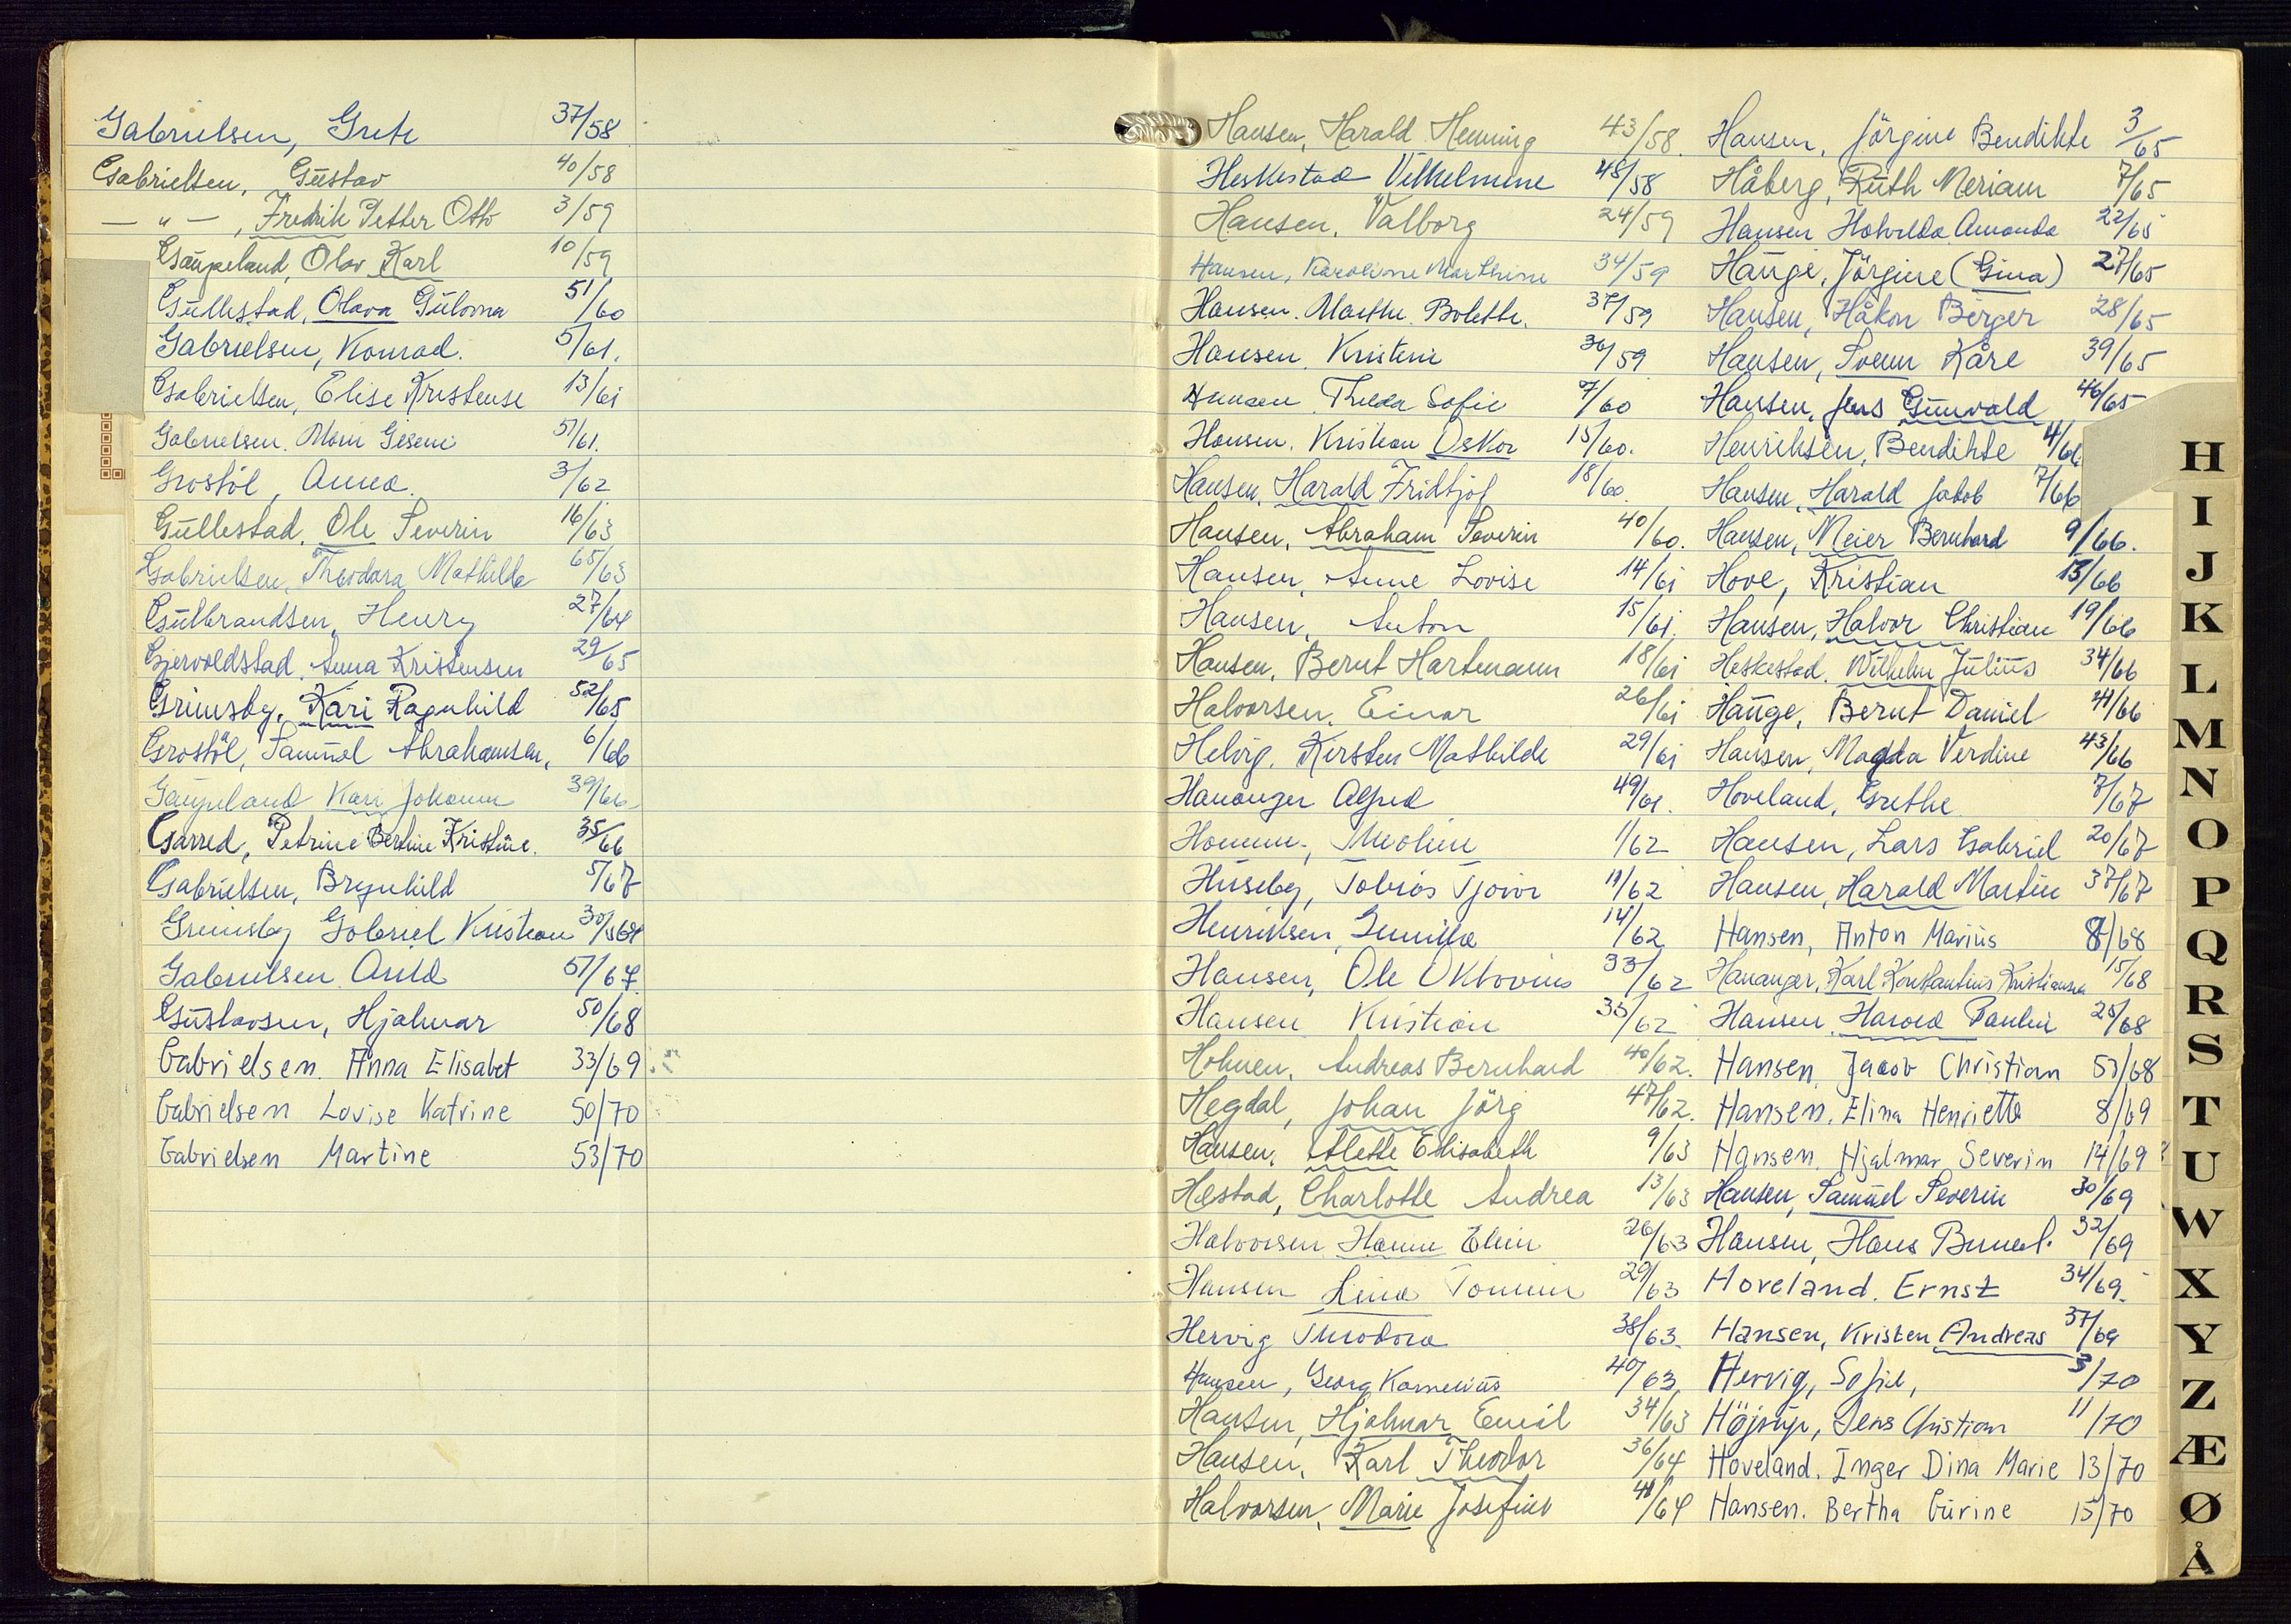 Gabrielsen, Grete 37/58
Gabrielsen, Gustav 40/58
— " — , Fredrik Petter Otto 3/59
Gaupeland, Olav Karl 10/59
Gullestad, Olava Gulovna 51/60
Gabrielsen, Konrad. 5/61.
Gabrielsen, Elise Kristense 13/61
Gabrielsen. Marn Gesene 51/61.
Grostöl, Anna. 3/62
Gullestad, Ole Severin 16/63
Gabrielsen, Theodora Mathilde 65/63
Gulbrandsen, Henry 27/64
Gjervoldstad, Anna Kristensen 29/65
Grimsby, Kari Ragnhild 52/65
Grostöl, Samuel Abrahamsen, 6/66
Gaupeland Kari Johanne 39/66
Garred, Petrine Bertine Kristine. 35/66
Gabrielsen, Brynhild 5/67
Grimsby Gabriel Kristian 30/67
Gabrielsen Arild 51/67
Gustavsen, Hjalmar 50/68
Gabrielsen. Anna Elisabet 33/69
Gabrielsen Lovise Katrine 50/70
Gabrielsen Martine 53/70
Hansen, Harald Henning 43/58.
Heskestad Vilhelmine 48/58
Hansen, Valborg 24/59
Hansen, Karoline Marthine 34/59
Hansen. Marthe Bolette. 37/59
Hansen. Kristine 36/59
Hansen Thelda Sofie 7/60
Hansen. Kristian Oskar 15/60.
Hansen, Harald Fridtjof 18/60.
Hansen, Abraham Severin 40/60.
Hansen, Anne Lovise 14/61
Hansen, Anton 15/61.
Hansen, Bernt Hartmann 18/61
Halvorsen, Einar 26/61
Helvig, Kirsten Mathilde 29/61
Hananger Alfred 49/61.
Homme, Theoline 1/62
Huseby, Tobias Tjovor 11/62
Henriksen, Gunilla 14/62
Hansen, Ole Oktovius 33/62
Hansen Kristian 35/62
Holmen, Andreas Bernhard 40/62.
Hegdal, Johan Jörg 47/62.
Hansen, Alette Elisabeth 9/63
Hestad, Charlotte Andrea 13/63
Halvorsen Hanne Elin 26/63
Hansen Lina Tomine 29/63
Hervig Theodora 38/63.
Hansen, Georg Kornelius 40/63
Hansen, Hjalmar Emil 34/63
Hansen, Karl Theodor 36/64
Halvorsen, Marie Josefine 48/64
Hansen, Jörgine Bendikte 3/65
Håberg, Ruth Meriam 7/65
Hansen Hatvilda Amanda 22/65
Hauge, Jörgine (Gina) 27/65
Hansen, Håkon Birger 28/65
Hansen, Svenn Kåre 39/65
Hansen, Jens Gunvald 46/65
Henriksen, Bendikte 4/66
Hansen, Harald Jakob 7/66
Hansen, Meier Bernhard 9/66.
Hove, Kristian 13/66
Hansen, Halvor Christian 19/66
Heskestad, Wilhelm Julius 34/66
Hauge, Bernt Daniel 41/66
Hansen, Magda Verdine 43/66
Hoveland, Grethe 7/67
Hansen, Lars Gabriel 20/67
Hansen, Harald Martin 37/67
Hansen, Anton Marius 8/68
Hananger, Karl Konstantius Kristiansen 15/68
Hansen, Harald Paulin 25/68
Hansen, Jacob Christian 53/68
Hansen. Elina Henriette 8/69
Hansen. Hjalmar Severin 14/69
Hansen, Samuel Severin 30/69
Hansen, Hans 32/69
Hoveland. Ernst 34/69.
Hansen, Kristen Andreas 37/69
Hervig, Sofie, 3/70
Höjrup, Jens Christian 11/70
Hoveland. Inger Dina Marie 13/70
Hansen. Bertha Gurine 15/70
H
I
J
K
L
M
N
O
P
Q
R
S
T
U
W
X
Y
Z
Æ
Ø
Å